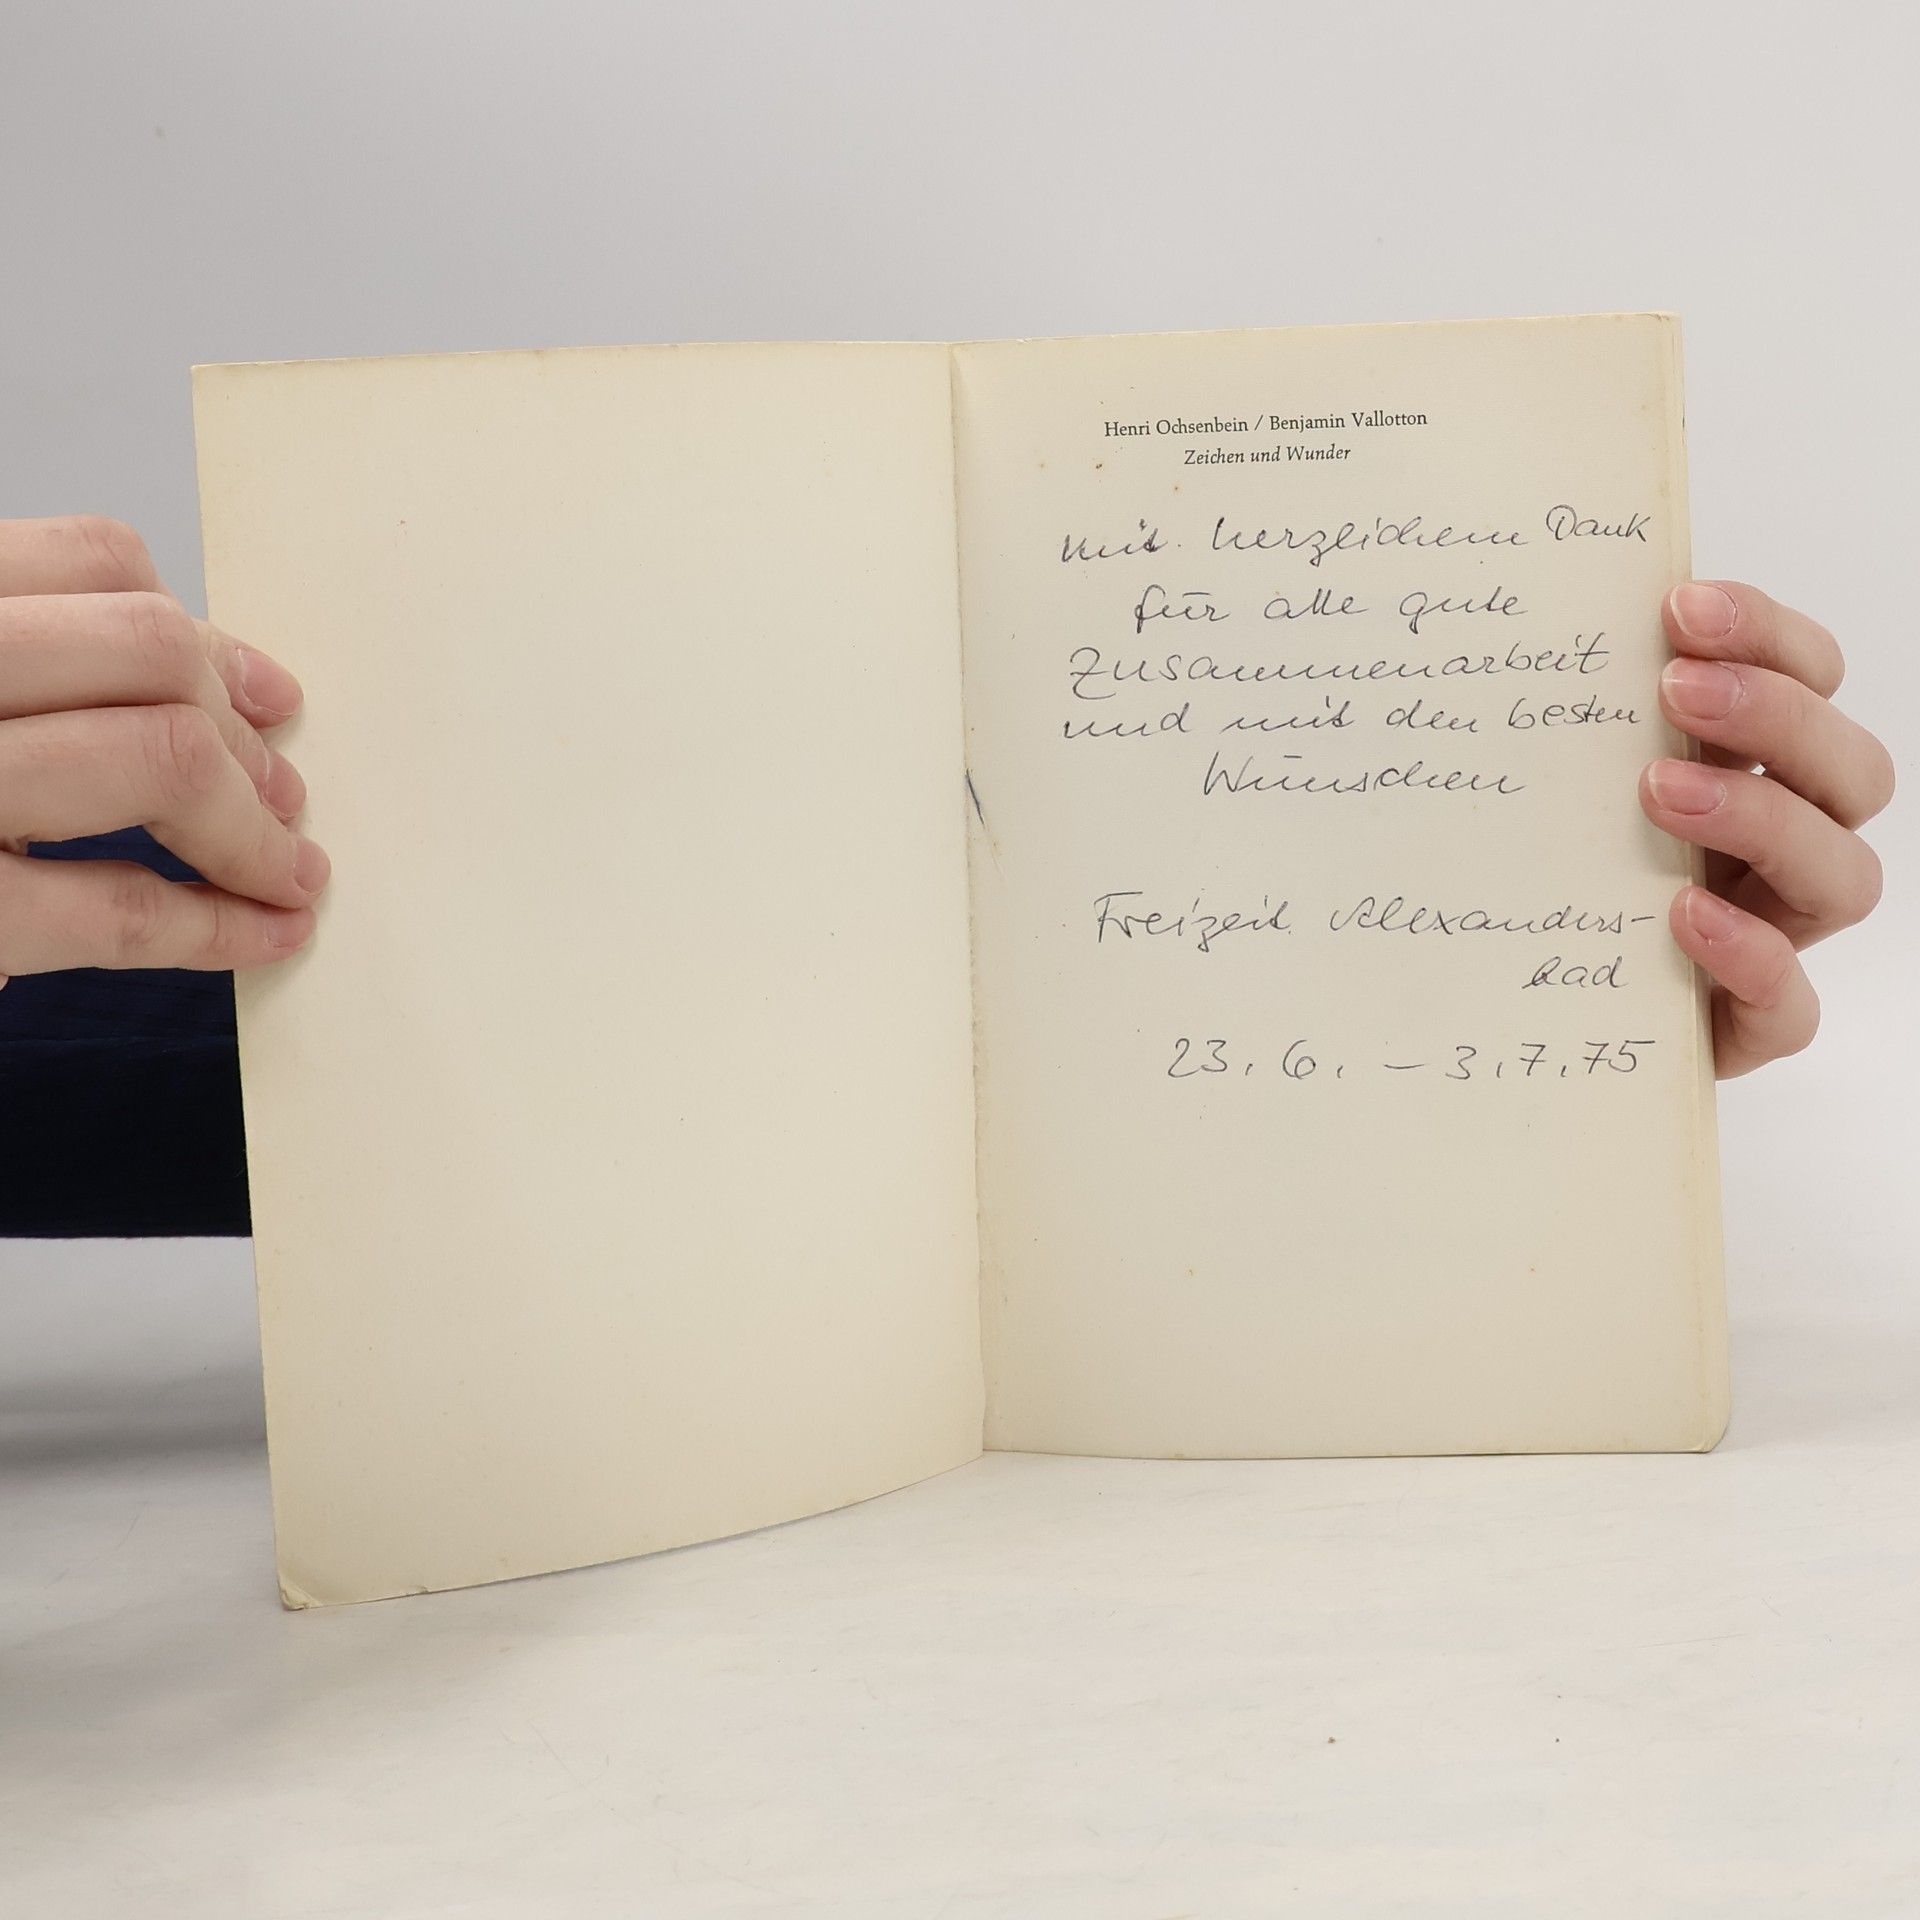 Henri Ochsenbein / Benjamin Vallotton
Zeichen und Wunder
mit herzlichem Dank
für alle gute
Zusammenarbeit
und mit den besten
Wünschen
Freizeit Alexanders-
bad
23.6. – 3.7.75